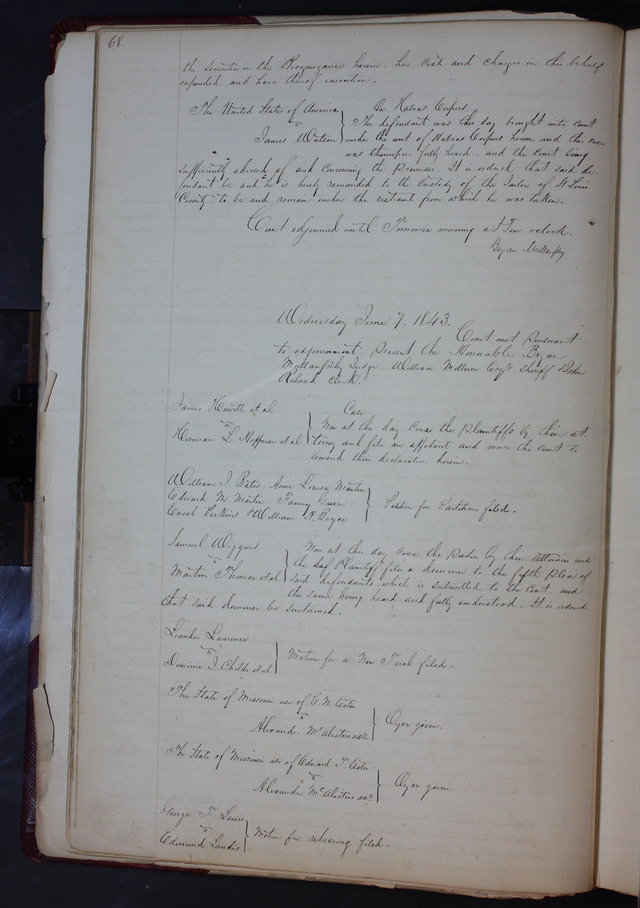 68.
the securities in the Recognizance herein her costs and charges in this behalf
expended, and have thereof execution.
The United States of America
vs
James Watson
On Habeas Corpus.
The defendant was this day brought into court
under the writ of Habeas Corpus herein and this case
was thereupon fully heard, and the court being
sufficiently advised of and concerning the Premises. It is ordered that said de-
fendant be and he is hereby remanded to the custody of the Jailor of St Louis
County to be and remain under the restraint from which he was taken.
Court adjourned until Tomorrow morning at Ten oclock.
Bryan Mullanphy
Wednesday June 7. 1843.
Court met pursuant
to adjournment, present the Honorable Bryan
Mullanphy Judge William Milburn Esqr Sheriff John
Ruland Clerk.
James Hewitt et al
vs
Herman L. Hoffman et al
Case
Now at this day come the plaintiffs by their at-
torney and file an affidavit and move the Court to
amend their declaration herein.
William J. Bates Anne Louisa Martin
Edward M. Martin Fanny
Enoch Perkins & William H. Boyce
Petition for Partition filed.
Samuel Wiggins
vs
Martin Thomas et al
Now at this day come the Parties by their attornies and
the said Plaintiff files a demurrer to the fifth Plea of
said defendants which is submitted to the Court, and
the same being heard and fully understood. It is ordered
that said demurrer be sustained.
Leander Lawrence
vs
Dominic J. Childs et al
Motion for a New Trial filed.
The State of Missouri use of C. N.
vs
Alexander McAlister
Oyer given.
The State of Missouri use of Edward T.
vs
Alexander McAlister
Oyer given
George T.
vs
Edmund Landis
Motion for rehearing filed.